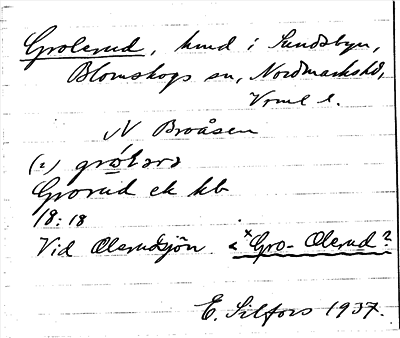 Grolerud, hmd i Sundsbyn,
Blomskogs sn, Nordmarks hd,
Vrml l.
N Broåsen
(2) gròlərə
Grorud ek kb
18:18
Vid Olerudsjön. < *Gro-Olerud?
E. Silfors 1937.